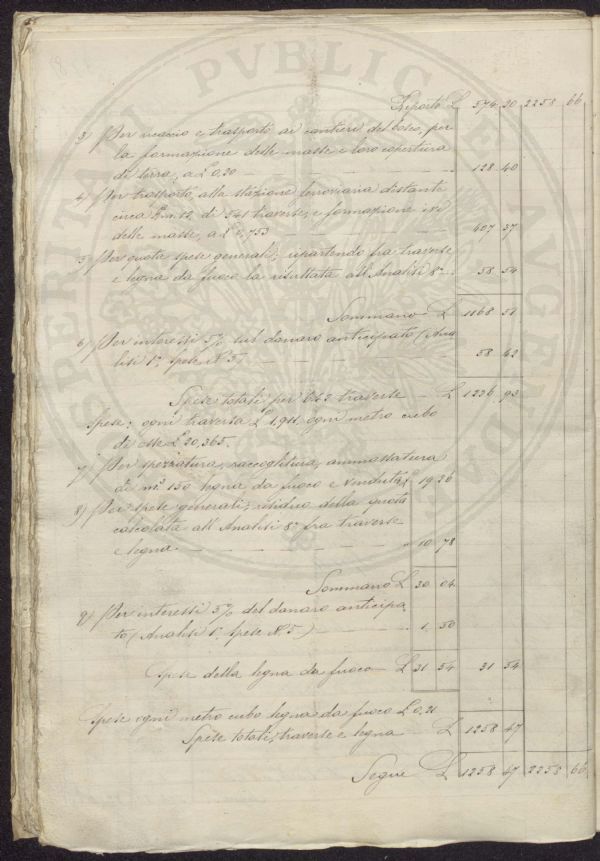 Riporto L. 574 20 2258 66
3) Per scavo e trasporto ai cantieri del bosco, per
la formazione delle masse e loro copertura
di terra, a L. 0,20 128 40
4) Per trasporto alla stazione ferroviaria distante
circa Km. 12 di 541 traverse, e formazione ivi
delle masse, a L. 0,753 407 37
5) Per quota spese generali, ripartendo fra traverse
e legna da fuoco la risultata all'Analisi 8ª 58 54
Sommano L. 1168 51
6) Per interessi 5% sul danaro anticipato (Ana
lisi 1ª, spese N. 5) 58 42
Spese totali per 642 traverse L. 1226 93
Spese: ogni traversa L. 1,911, ogni metro cubo
di esse L. 20,365.
7) Per spezzatura, raccoglitura, ammassatura
di m.c. 150 legna da fuoco e vendita L. 19 26
8) Per spese generali, residuo della quota
calcolata all'Analisi 8ª fra traverse
e legna " 10 78
Sommano L. 30 04
9) Per interessi 5% del danaro anticipa
to (Analisi 1ª Spese N. 5) 1 50
Spese della legna da fuoco L. 31 54 31 54
Spese ogni metro cubo legna da fuoco L. 0,21
Spese totali, traverse e legna L. 1258 47
Segue L. 1258 47 2258 66